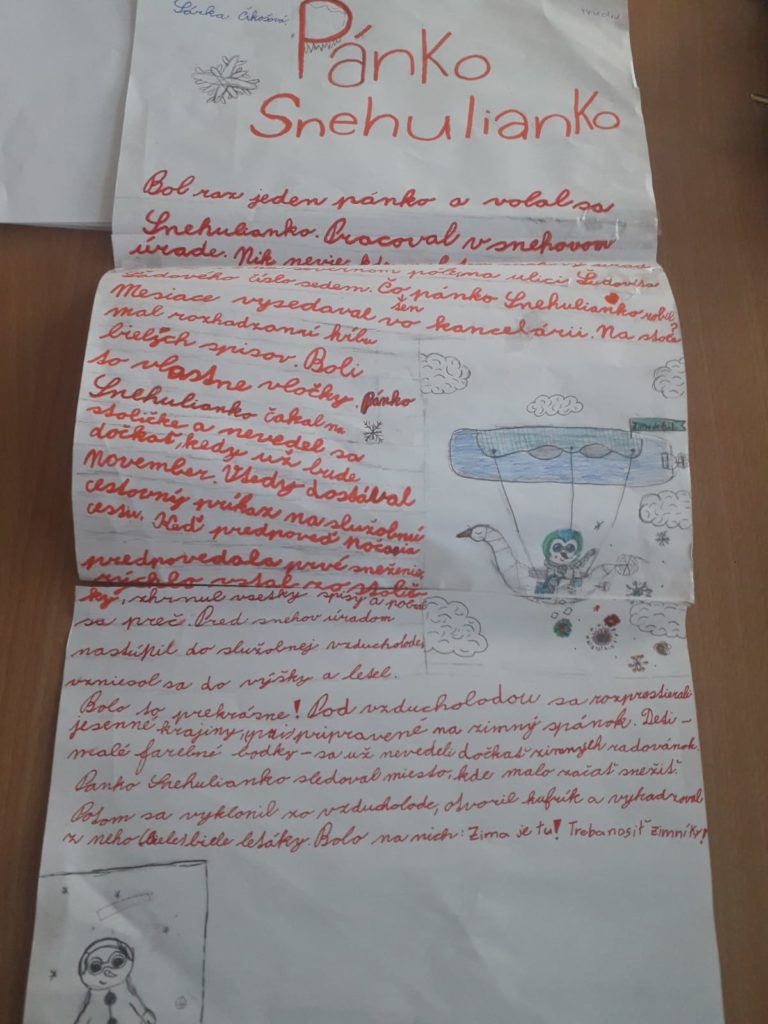 Sárka Čikošová
Pánko
Snehulianko
Bol raz jeden pánko a volal sa
Snehulianko. Pracoval v snehovom
úrade. Nik nevie, kde
na severnom póle, na ulici Ľudovíta
Ľadového číslo sedem. Čo pánko Snehulianko robil?
Mesiace vysedával vo kancelárii. Na stole
šen
mal rozhádzannú kŕbu
bielych spisov. Boli
to vlastne vločky. Pánko
Snehulianko čakal na
stoličke a nevedel sa
dočkať, kedy už bude
November. Vtedy dostával
cestovný príkaz na služobnú
cestu. Keď predpoveď počasia
predpovedala prvé sneženie,
rýchlo vstal zo stolič-
ky, zhrnul všetky spisy a pobral
sa preč. Pred snehov úradom
nastúpil do služobnej vzducholode,
vzniesol sa do výšky a letel.
Bolo to prekrásne! Pod vzducholoďou sa rozprestierali
jesenné krajiny, pripravené na zimný spánok. Deti -
malé farebné bodky - sa už nevedeli dočkať zimných radovánok.
Panko Snehulianko sledoval miesto, kde malo začať snežiť.
Potom sa vyklonil zo vzducholode, otvoril kufrík a vyhadzoval
z neho biele letáky. Bolo na nich: Zima je tu! Treba nosiť zimníky!